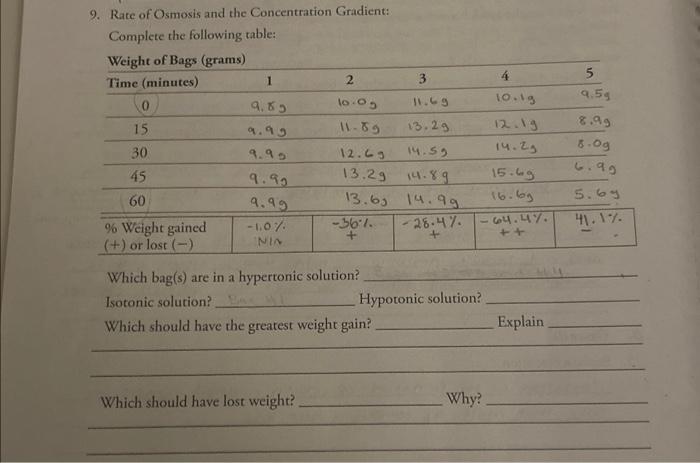 9. Rate of Osmosis and the Concentration Gradient:
Complete the following table:
Weight of Bags (grams)
Time (minutes) 1 2 3 4 5
0 9.8g 10.0g 11.6g 10.1g 9.5g
15 9.9g 11.8g 13.2g 12.1g 8.9g
30 9.9g 12.6g 14.5g 14.2g 8.0g
45 9.9g 13.2g 14.8g 15.6g 6.9g
60 9.9g 13.6g 14.9g 16.6g 5.6g
% Weight gained -1.0% -36% -28.4% -64.4% 41.1%
(+) or lost (−) N/A + + ++ −
Which bag(s) are in a hypertonic solution?
Isotonic solution? Hypotonic solution?
Which should have the greatest weight gain? Explain
Which should have lost weight? Why?